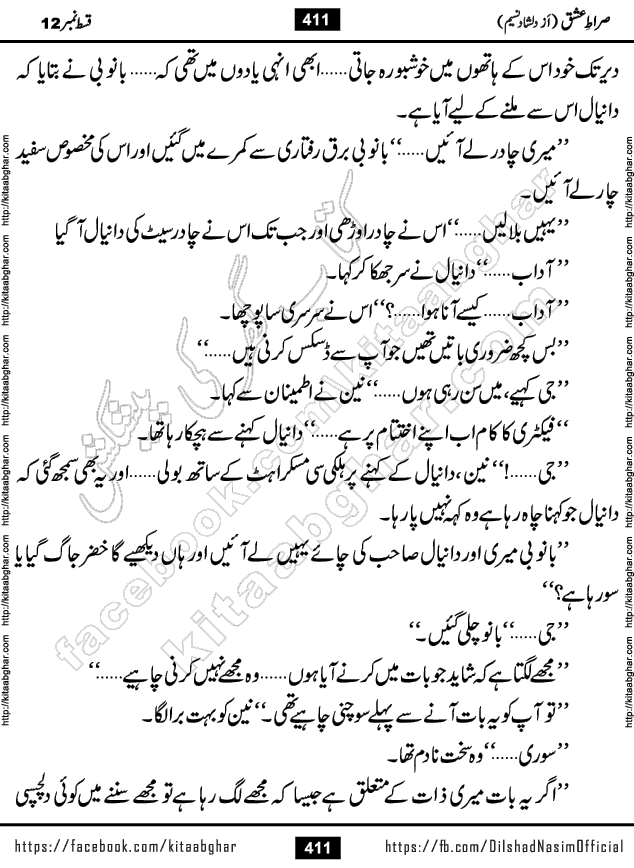 صراطِ عشق (از دلشاد نسیم) 411 قسط نمبر 12
دیر تک خود اس کے ہاتھوں میں خوشبو رہ جاتی ...... ابھی انہی یادوں میں تھی کہ ...... بانو بی نے بتایا کہ
دانیال اس سے ملنے کے لیے آیا ہے۔
’’میری چادر لے آئیں ......‘‘ بانو بی برق رفتاری سے کمرے میں گئیں اور اس کی مخصوص سفید
چار لے آئیں۔
’’یہیں بلا لیں ......‘‘ اس نے چادر اوڑھی اور جب تک اس نے چادر سیٹ کی دانیال آ گیا
’’آداب ......‘‘ دانیال نے سر جھکا کر کہا۔
’’آداب ...... کیسے آنا ہوا ......؟‘‘ اس نے سرسری سا پوچھا۔
’’بس کچھ ضروری باتیں تھیں جو آپ سے ڈسکس کرنی ہیں ......‘‘
’’جی کہیے، میں سن رہی ہوں ......‘‘ نین نے اطمینان سے کہا۔
’’فیکٹری کا کام اب اپنے اختتام پر ہے ......‘‘ دانیال کہنے سے ہچکا رہا تھا۔
’’جی ......!‘‘ نین، دانیال کے کہنے پر ہلکی سی مسکراہٹ کے ساتھ بولی ...... اور یہ بھی سمجھ گئی کہ
دانیال جو کہنا چاہ رہا ہے وہ کہہ نہیں پا رہا۔
’’بانو بی میری اور دانیال صاحب کی چائے یہیں لے آئیں اور ہاں دیکھیے گا خضر جاگ گیا یا
سو رہا ہے؟‘‘
’’جی ......‘‘ بانو چلی گئیں۔
’’مجھے لگتا ہے کہ شاید جو بات میں کرنے آیا ہوں ...... وہ مجھے نہیں کرنی چاہیے ......‘‘
’’تو آپ کو یہ بات آنے سے پہلے سوچنی چاہیے تھی۔‘‘ نین کو بہت برا لگا۔
’’سوری ......‘‘ وہ سخت نادم تھا۔
’’اگر یہ بات میری ذات کے متعلق ہے جیسا کہ مجھے لگ رہا ہے تو مجھے سننے میں کوئی دلچسپی
https://facebook.com/kitaabghar 411 https://fb.com/DilshadNasimOfficial
http://kitaabghar.com http://kitaabghar.com http://kitaabghar.com http://kitaabghar.com http://kitaabghar.com http://kitaabghar.com
http://kitaabghar.com http://kitaabghar.com http://kitaabghar.com http://kitaabghar.com http://kitaabghar.com http://kitaabghar.com
کتاب گھر کی پیشکش
facebook.com/kitaabghar
kitaabghar.com